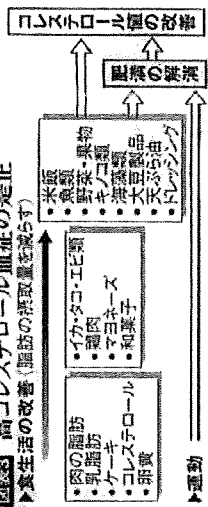 図表2 高コレステロール血症の是正
▶食生活の改善(脂肪の摂取量を減らす)
• 肉の脂肪
• 乳脂肪
• ケーキ
• コレステロール
• 卵黄
• イカ・タコ・エビ類
• 鶏肉
• マヨネーズ
• 和菓子
• 米飯
• 魚類
• 野菜・果物
• キノコ類
• 海藻類
• 大豆製品
• 天ぷら油
• ドレッシング
▶運動
肥満の解消
コレステロール値の改善